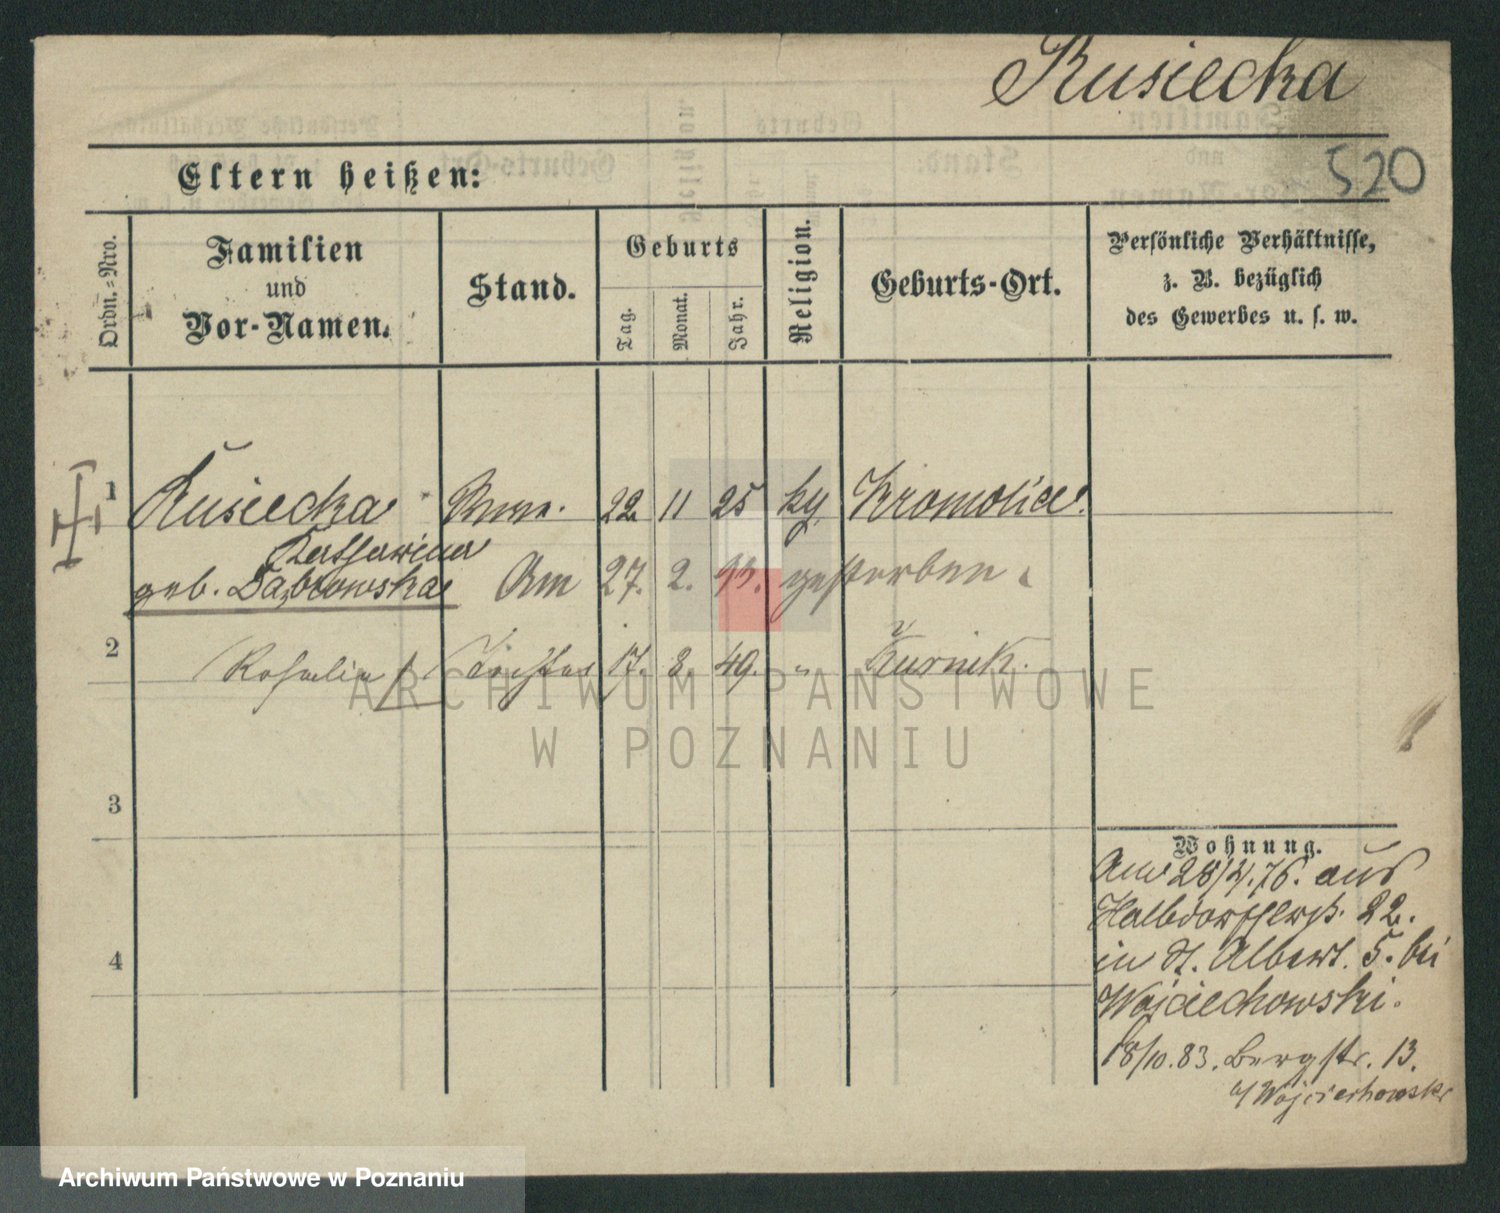 Rusiecka
520
Eltern heißen:
Ordn.-Nro.
Familien
und
Vor-Namen.
Stand.
Geburts
Tag.
Monat.
Jahr.
Religion.
Geburts-Ort.
Persönliche Verhältnisse,
z. B. bezüglich
des Gewerbes u. s. w.
1 Rusiecka 22 11 25 Kromolice.
Katharina
geb. Dąbrowska Am 27. 2. 93. gestorben.
2 Rosalia Tochter 17. 8. 49. " Kurnik.
3
4
Wohnung.
Am 28/4.76. aus
Halbdorfferstr. 22.
in St. Albert. 5. bei
Wojciechowski.
18/10.83. Bergstr. 13.
b/ Wojciechowski
ARCHIWUM PAŃSTWOWE
W POZNANIU
Archiwum Państwowe w Poznaniu